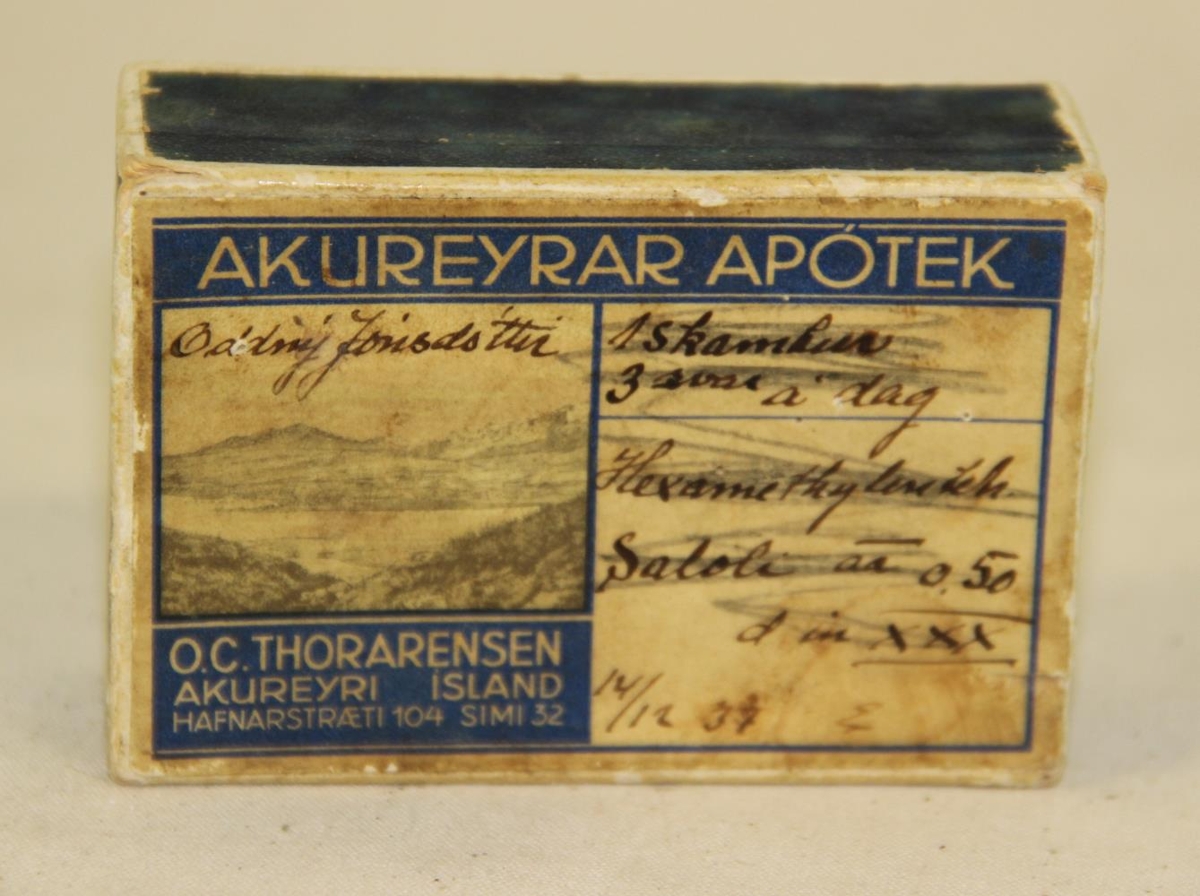 AKUREYRAR APÓTEK
Oddný Jónsdóttir
1 skamtur
3svar á dag
Hexamethylentetr.
Saloli aa 0,50
d in XXX
14/12 37
O.C. THORARENSEN
AKUREYRI ÍSLAND
HAFNARSTRÆTI 104 SIMI 32